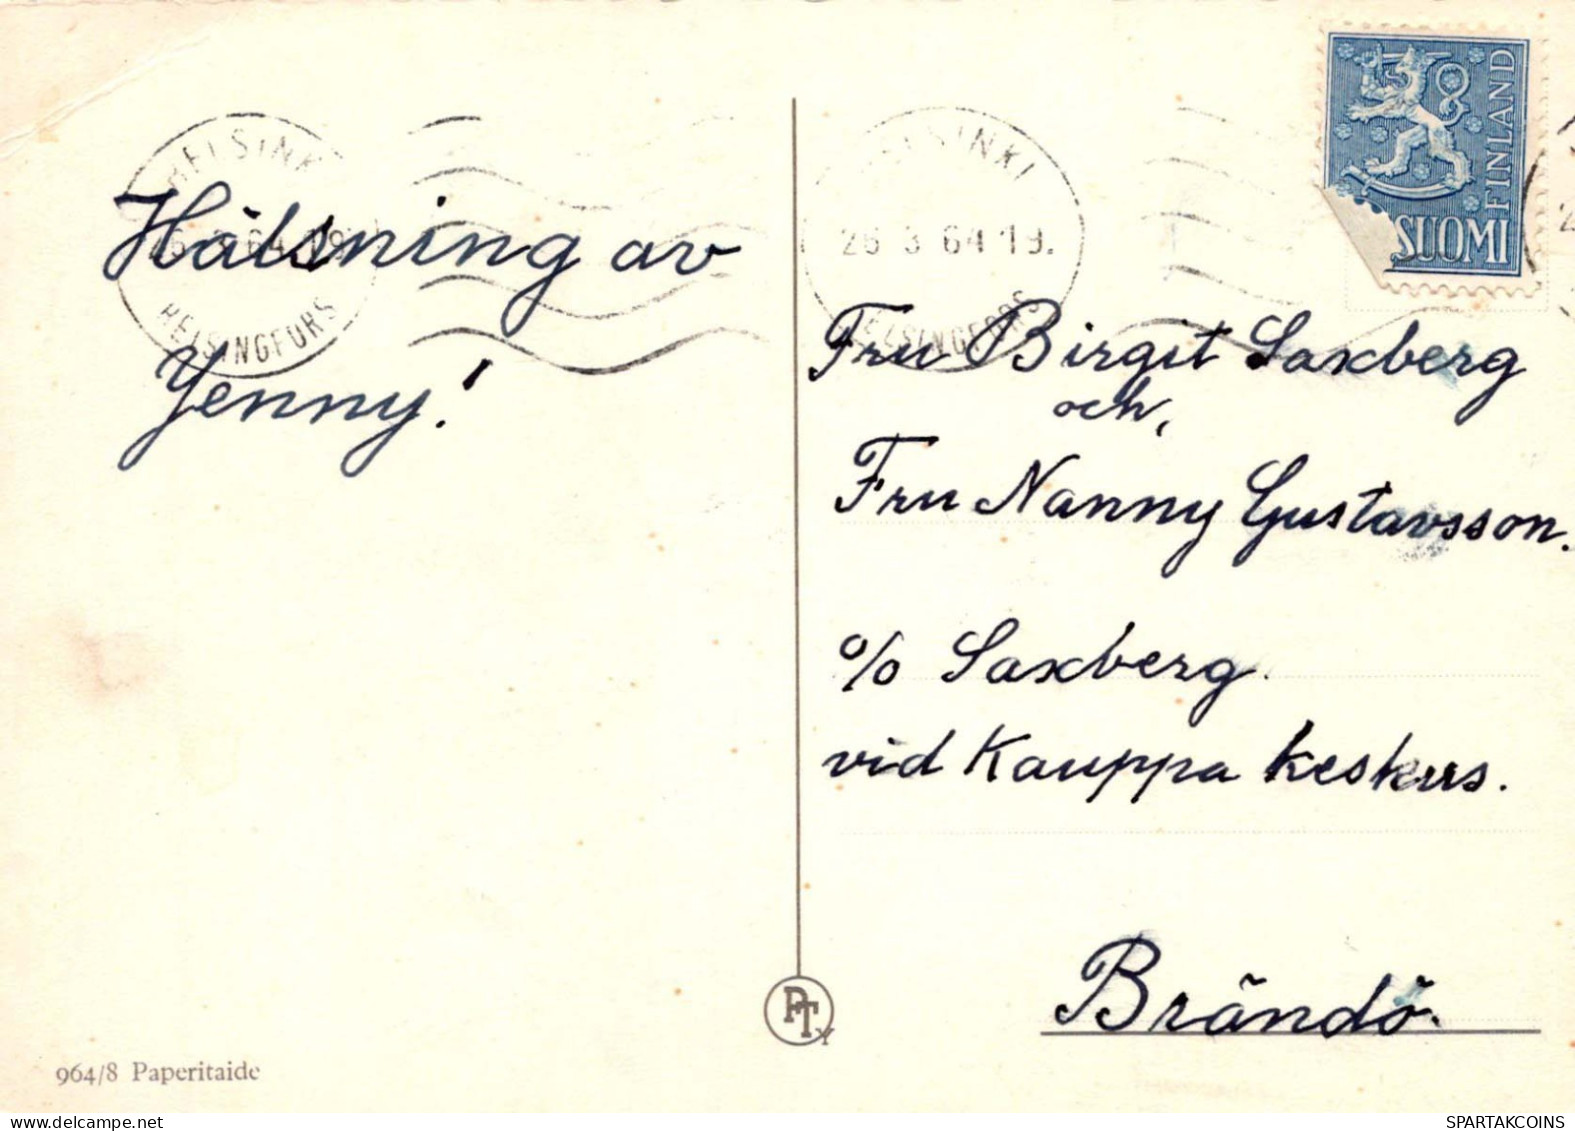 HELSINKI
26 3 64 19.
HELSINGFORS
Hälsning av
Jenny!
HELSINKI
26 3 64 19.
HELSINGFORS
FINLAND
SUOMI
Fru Birgit Saxberg
och,
Fru Nanny Gustavsson.
c/o Saxberg.
vid Kauppa keskus.
Brändö.
PTy
964/8 Paperitaide
SPARTAKCOINS